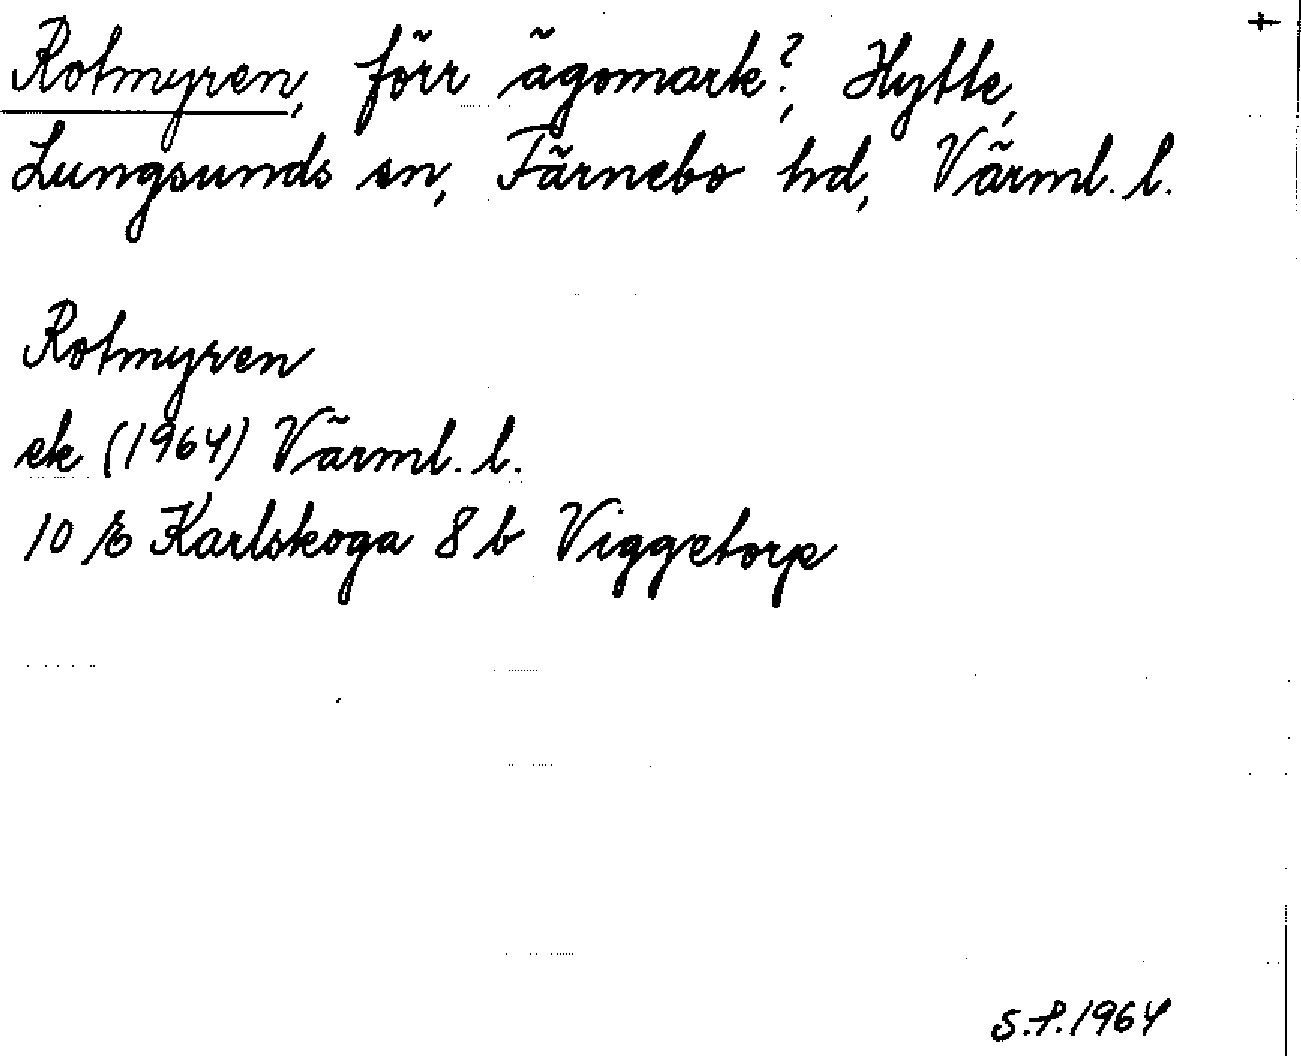 +
Rotmyren, förr ägomark?, Hytte,
Lungsunds sn, Färnebo hd, Värml. l.
Rotmyren
ek (1964) Värml. l.
10 E Karlskoga 8 b Viggetorp
S.P. 1964